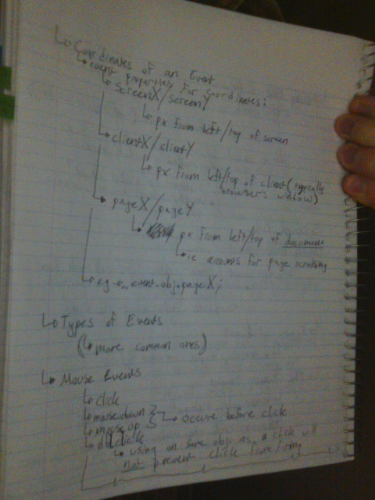 ↳ Coordinates of an Event
↳ event properties for coordinates:
↳ screenX/screenY
↳ px from left/top of screen
↳ clientX/clientY
↳ px from left/top of client (typically
browser's window)
↳ pageX/pageY
↳ px from left/top of document
↳ ie accounts for page scrolling
↳ eg event_obj.pageX;
↳ Types of Events
(↳ more common ones)
↳ Mouse Events
↳ click
↳ mousedown
↳ mouseup
↳ occur before click
↳ dblclick
↳ using on same obj as a click will
not prevent click from firing